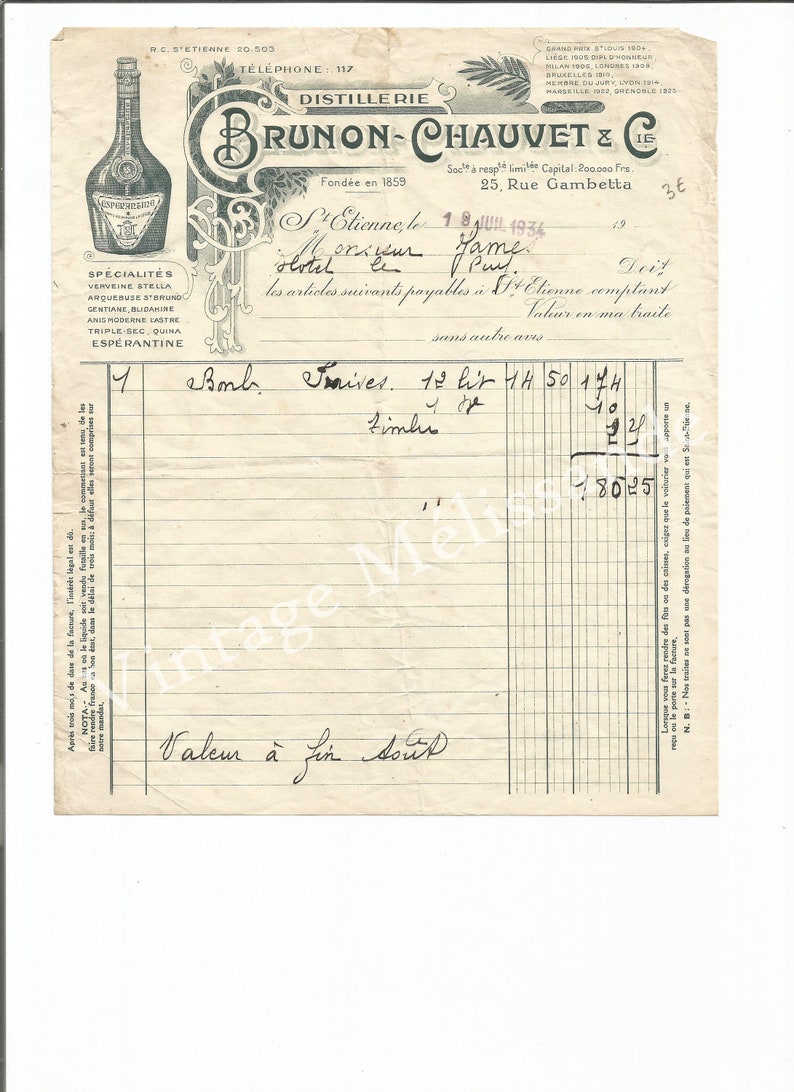 R.C. St ETIENNE 20.503
TÉLÉPHONE: 117
GRAND PRIX, St LOUIS 1904,
LIÈGE 1905, DIPL. D'HONNEUR,
MILAN 1906, LONDRES 1908,
BRUXELLES 1910,
MEMBRE DU JURY, LYON 1914,
MARSEILLE 1922, GRENOBLE 1925
DISTILLERIE
BRUNON-CHAUVET & CIE
Socté à respté limitée Capital: 200.000 Frs.
Fondée en 1859
25, Rue Gambetta
3€
ESPERANTINE
SPÉCIALITÉS
VERVEINE STELLA
ARQUEBUSE St BRUNO
GENTIANE, BLIDAHINE
ANIS MODERNE L'ASTRE
TRIPLE-SEC, QUINA
ESPÉRANTINE
St Etienne, le 19 JUIL 1934 19
Monsieur
Hotel Le Puy. Doit
les articles suivants payables à St Etienne comptant
Valeur en ma traite
sans autre avis
1 Bonb. 12 lit 14 50 174
1 10
Timbre
185 25
Valeur à fin Août
Après trois mois de date de la facture, l'intérêt légal est dû.
NOTA.- Au cas où le liquide soit vendu futaille en sus, le commettant est tenu de les
faire rendre franco au bon état, dans le délai de trois mois; à défaut elles seront comprises sur
notre mandat.
Lorsque vous ferez rendre des fûts ou des caisses, exigez que le voiturier vous apporte un
reçu ou le porte sur la facture,
N. B: - Nos traites ne sont pas une dérogation au lieu de paiement qui est Saint-Etienne.
Vintage